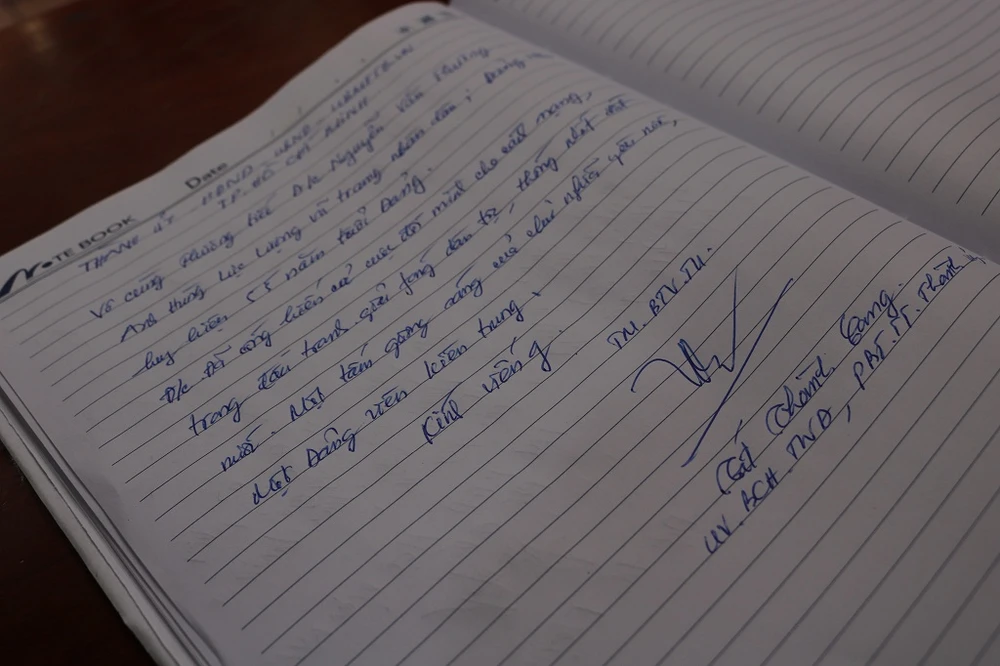 NOTE BOOK
Date
THÀNH ỦY - HĐND - UBND - UBMTTQVN
TP. HỒ CHÍ MINH
Vô cùng thương tiếc Đ/c Nguyễn Văn Thương
Anh hùng lực lượng vũ trang nhân dân,
huy hiệu 55 năm tuổi Đảng.
Đ/c đã cống hiến cả cuộc đời mình cho cách mạng,
trong đấu tranh giải fóng dân tộc, thống nhất đất
nước. Một tấm gương sáng của chủ nghĩa yêu nước,
một Đảng viên kiên trung.
Kính viếng
TM. BTV.TU.
Tất Thành Cang.
UV. BCH. TWĐ, PBT.TT. Thành